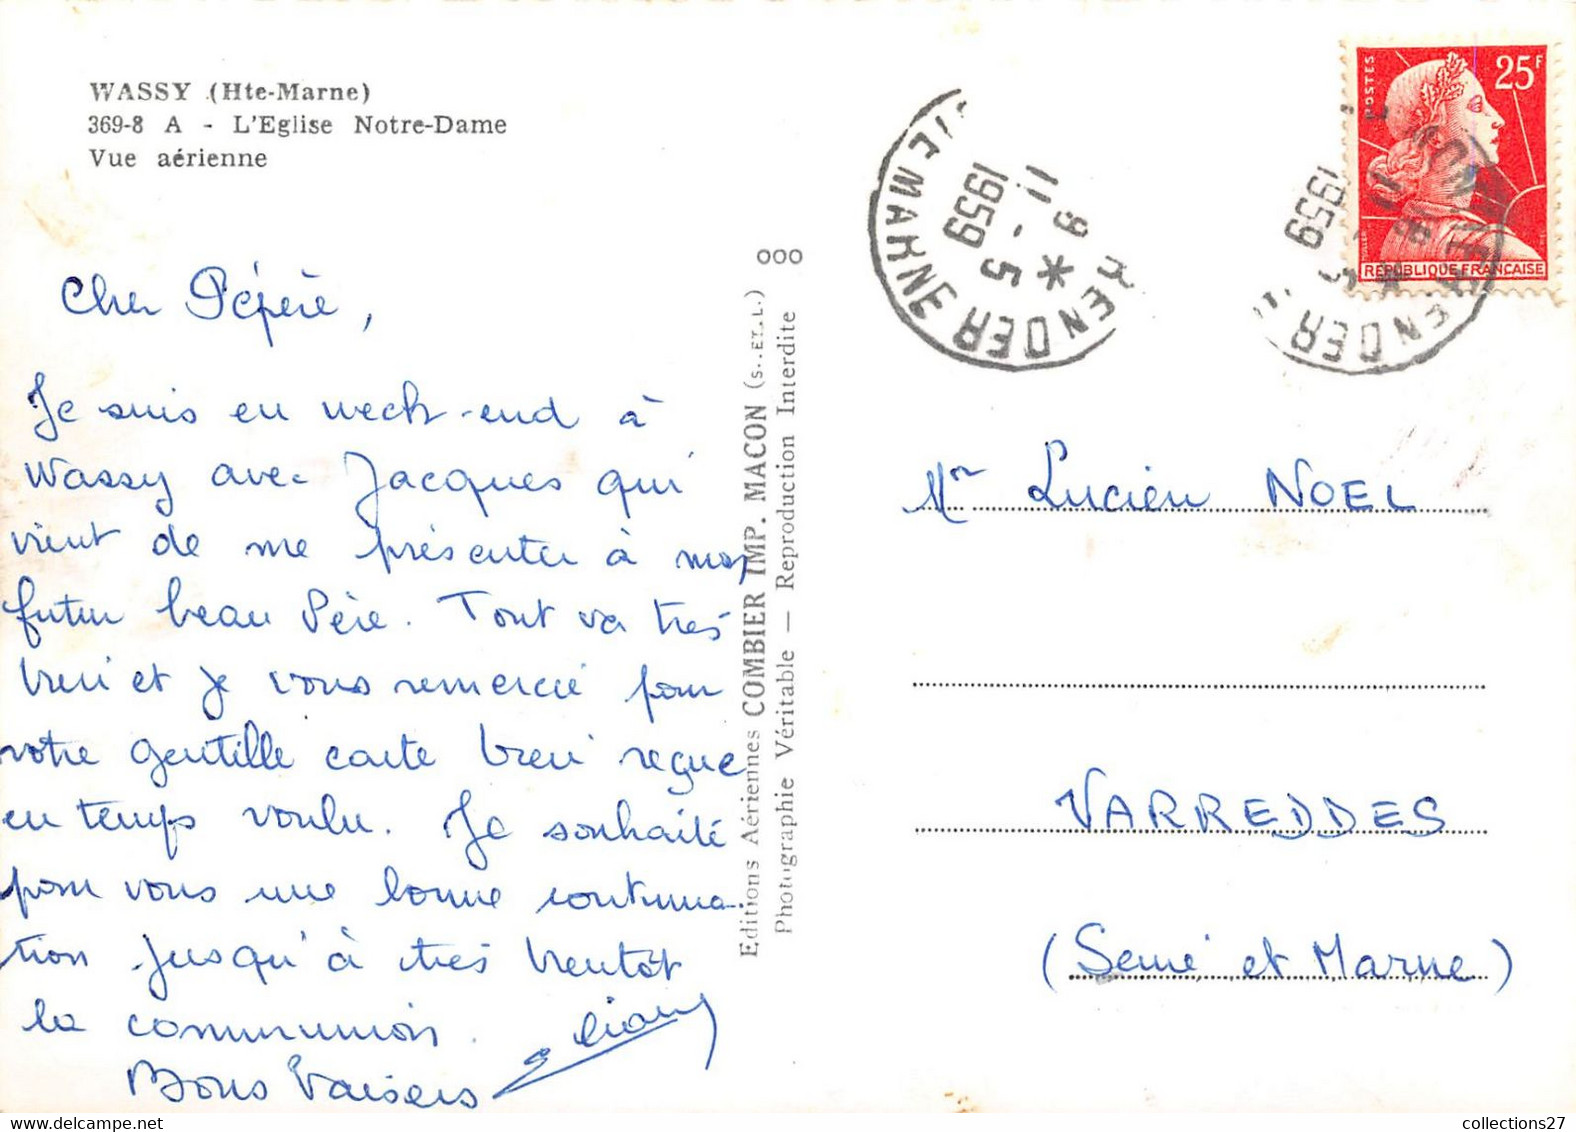 WASSY (Hte-Marne)
369-8 A - L'Eglise Notre-Dame
Vue aérienne
Cher Pépère,
Je suis en week-end à
Wassy avec Jacques qui
vient de me présenter à mon
futur beau Père. Tout va très
bien et je vous remercie pour
votre gentille carte bien reçue
en temps voulu. Je souhaite
pour vous une bonne continua-
tion jusqu'à très bientôt
la communion.
Bons Baisers
Editions Aériennes COMBIER IMP. MACON (S.-ET-L.)
Photographie Véritable — Reproduction Interdite
000
11 - 5
1959
RENDER
TE MARNE
POSTES
25F
REPUBLIQUE FRANCAISE
1959
Mr Lucien NOEL
VARREDDES
(Seine et Marne)
collections27